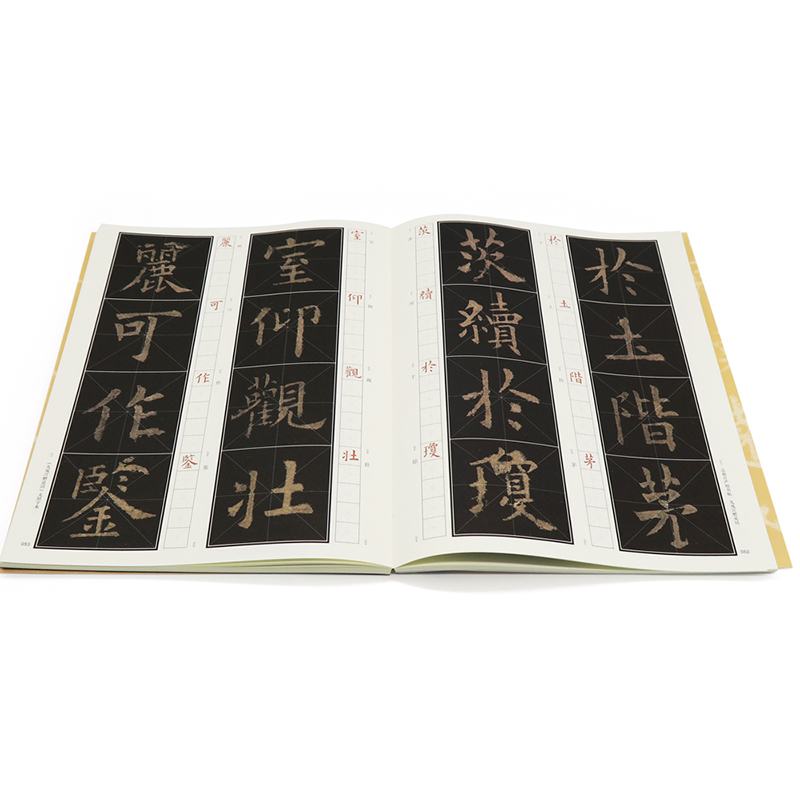 於土階茅
於土階茅
茨續於瓊
茨續於瓊
082
室仰觀壯
室仰觀壯
麗可作鑒
麗可作鑒
083